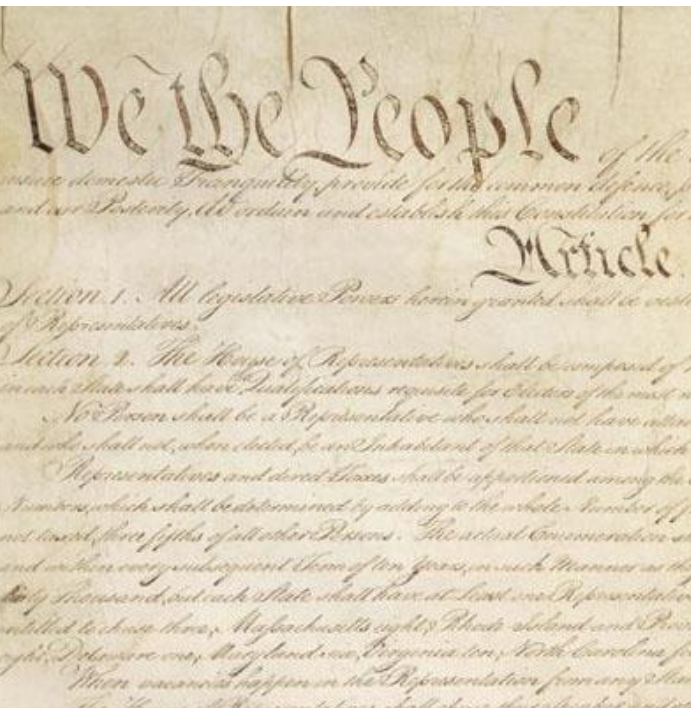 We the People of the
insure domestic Tranquility, provide for the common defence, p
and our Posterity, do ordain and establish this Constitution for
Article.
Section. 1. All legislative Powers herein granted shall be vest
of Representatives.
Section. 2. The House of Representatives shall be composed of
in each State shall have Qualifications requisite for Electors of the most
No Person shall be a Representative who shall not have attain
and who shall not, when elected, be an Inhabitant of that State in which
Representatives and direct Taxes shall be apportioned among the
Numbers, which shall be determined by adding to the whole Number of f
not taxed, three fifths of all other Persons. The actual Enumeration s
and within every subsequent Term of ten Years, in such Manner as th
thirty Thousand, but each State shall have at Least one Representative
entitled to chuse three, Massachusetts eight, Rhode Island and Prov
eight, Delaware one, Maryland six, Virginia ten, North Carolina f
When vacancies happen in the Representation from any Stat